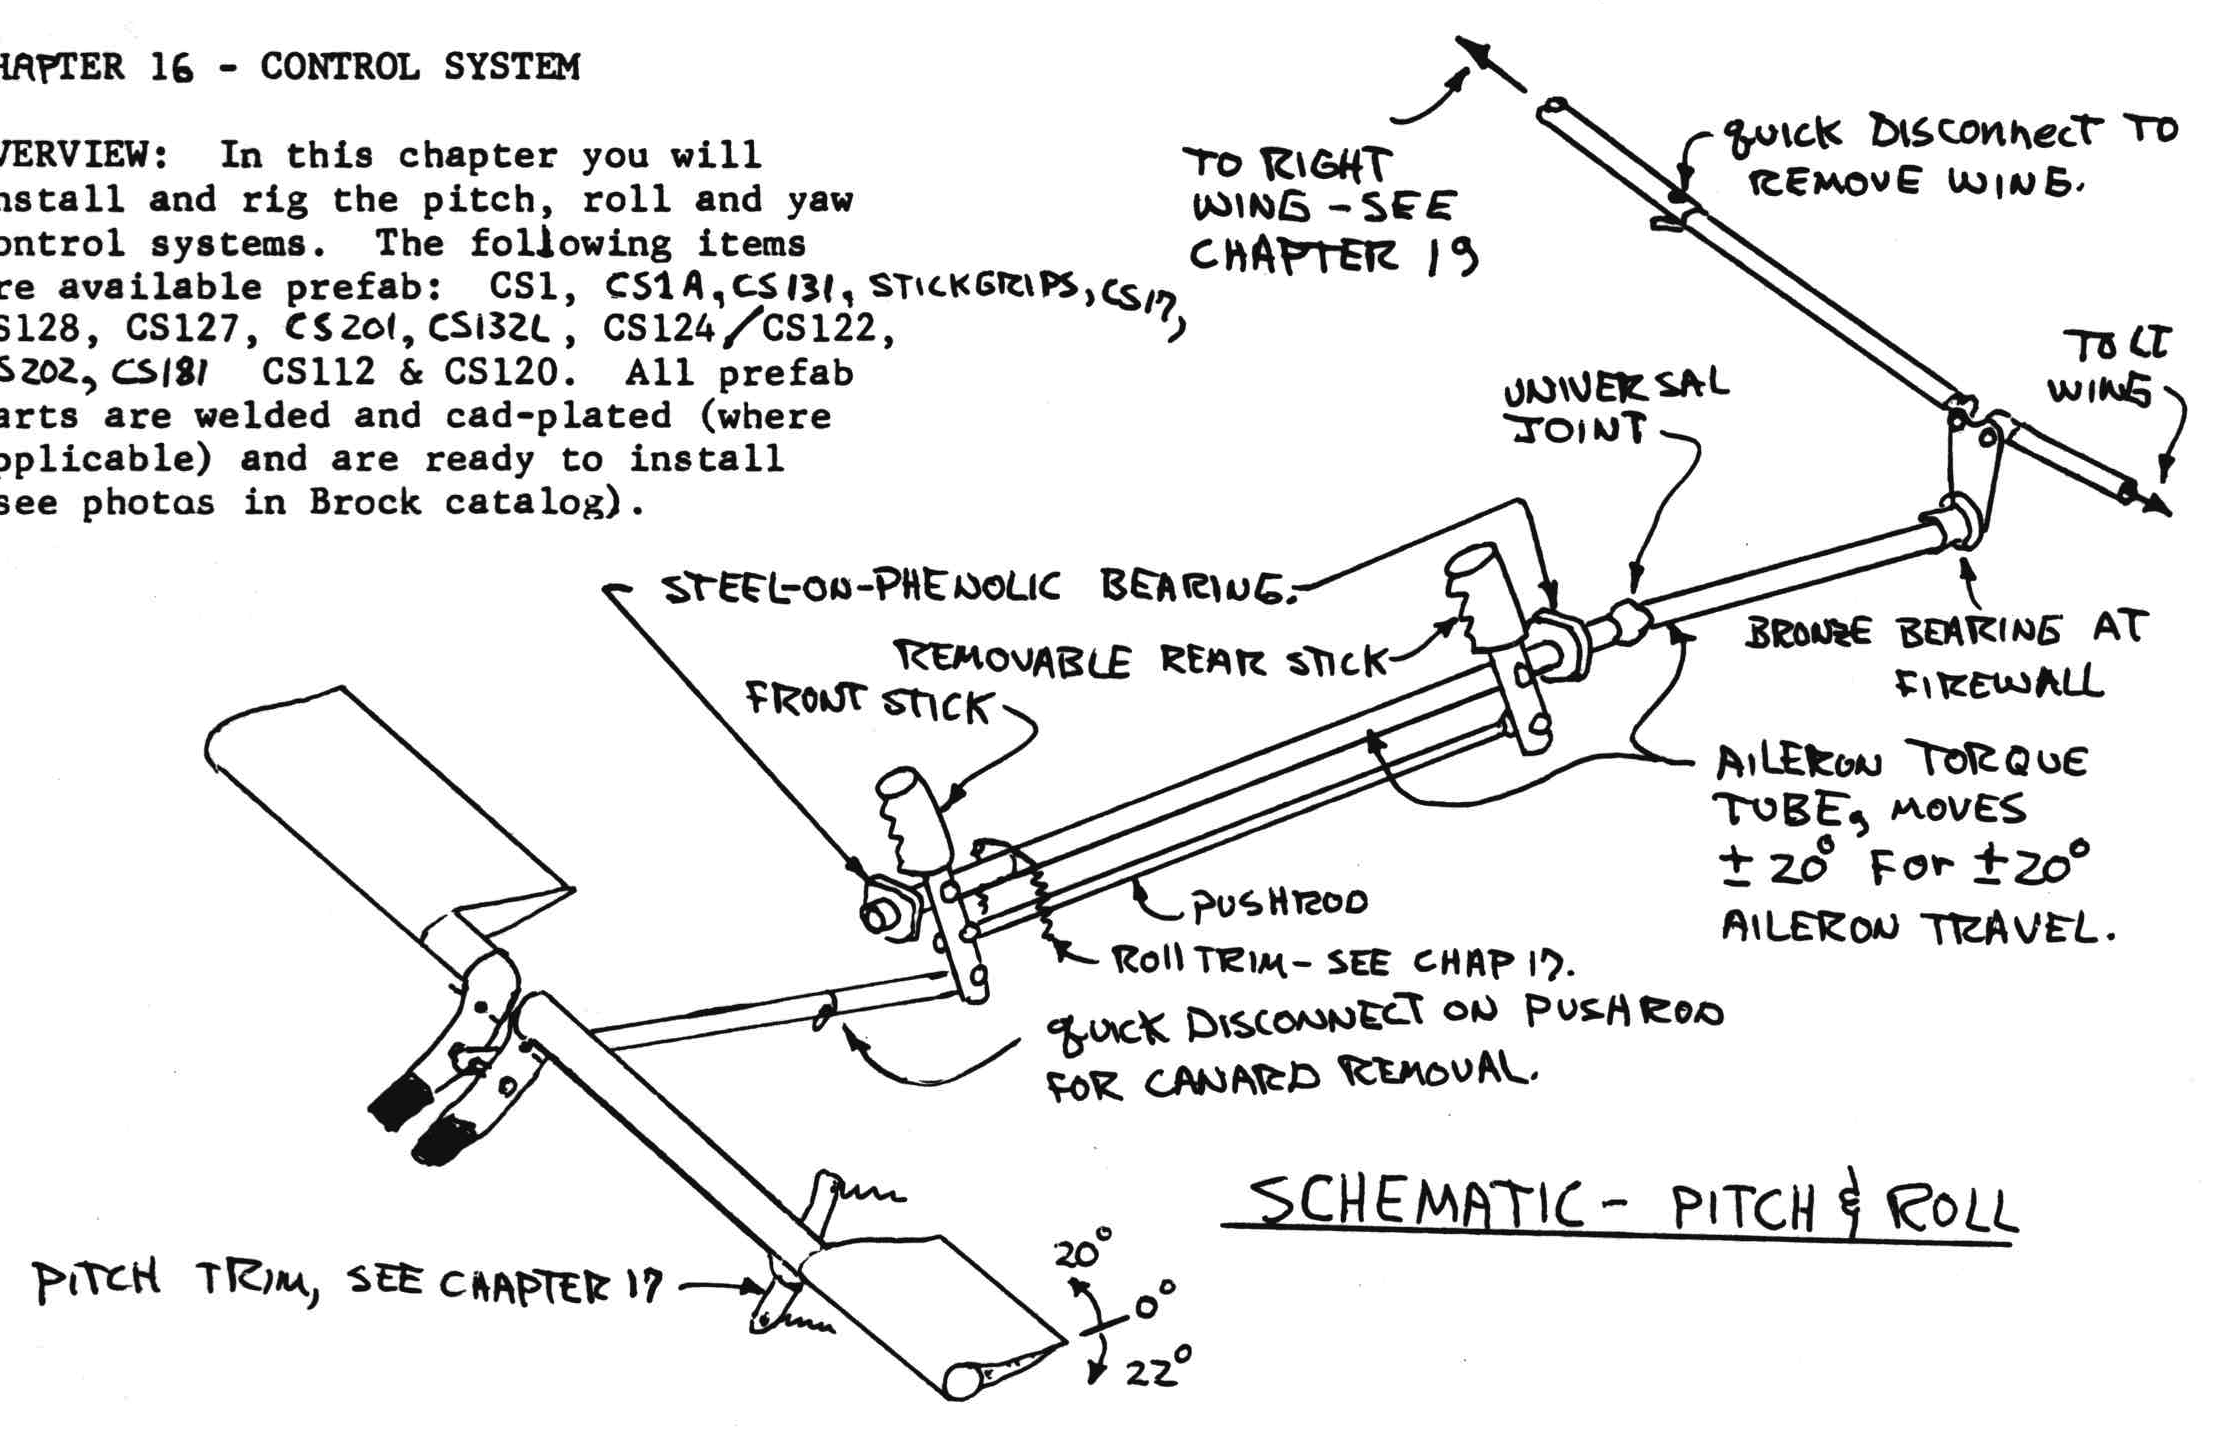 HAPTER 16 - CONTROL SYSTEM
VERVIEW: In this chapter you will
nstall and rig the pitch, roll and yaw
ontrol systems. The following items
re available prefab: CS1, CS1A, CS131, STICKGRIPS, CS17,
S128, CS127, CS201, CS132L, CS124/CS122,
S202, CS181 CS112 & CS120. All prefab
arts are welded and cad-plated (where
pplicable) and are ready to install
see photos in Brock catalog).
TO RIGHT
WING - SEE
CHAPTER 19
QUICK DISCONNECT TO
REMOVE WING.
TO LT
WING
UNIVERSAL
JOINT
STEEL-ON-PHENOLIC BEARING.
REMOVABLE REAR STICK
FRONT STICK
BRONZE BEARING AT
FIREWALL
AILERON TORQUE
TUBE, MOVES
± 20° FOR ± 20°
AILERON TRAVEL.
PUSHROD
ROLL TRIM - SEE CHAP 17.
QUICK DISCONNECT ON PUSHROD
FOR CANARD REMOVAL.
SCHEMATIC - PITCH & ROLL
PITCH TRIM, SEE CHAPTER 17
20°
0°
22°